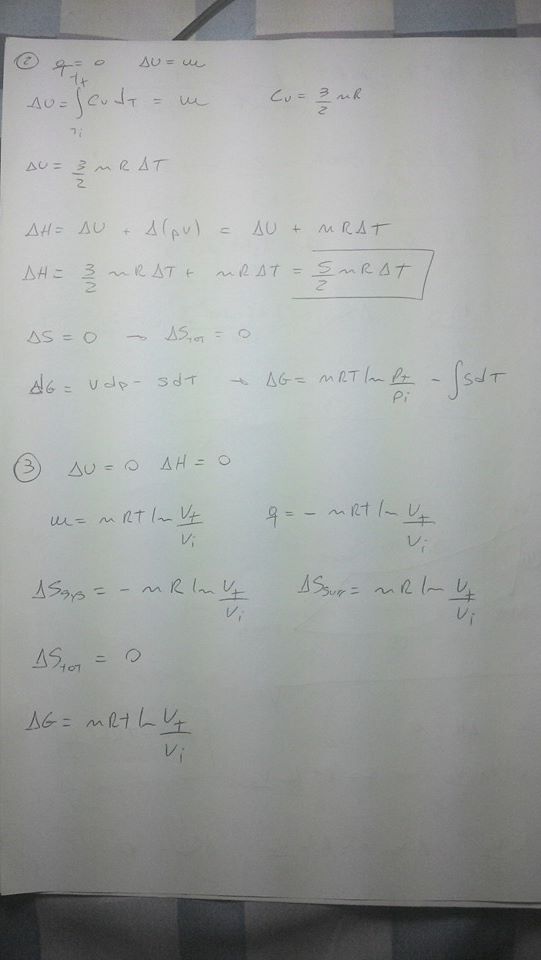 ② q = 0 ΔU = w
ΔU = ∫_{Ti}^{Tf} Cv dT = w Cv = 3/2 nR
ΔU = 3/2 nRΔT
ΔH = ΔU + Δ(pV) = ΔU + nRΔT
ΔH = 3/2 nRΔT + nRΔT = 5/2 nRΔT
ΔS = 0 → ΔStot = 0
dG = Vdp - SdT → ΔG = nRT ln Pf/Pi - ∫SdT
③ ΔU = 0 ΔH = 0
w = nRT ln Vf/Vi q = - nRT ln Vf/Vi
ΔSsys = - nR ln Vf/Vi ΔSsurr = nR ln Vf/Vi
ΔStot = 0
ΔG = nRT ln Vf/Vi